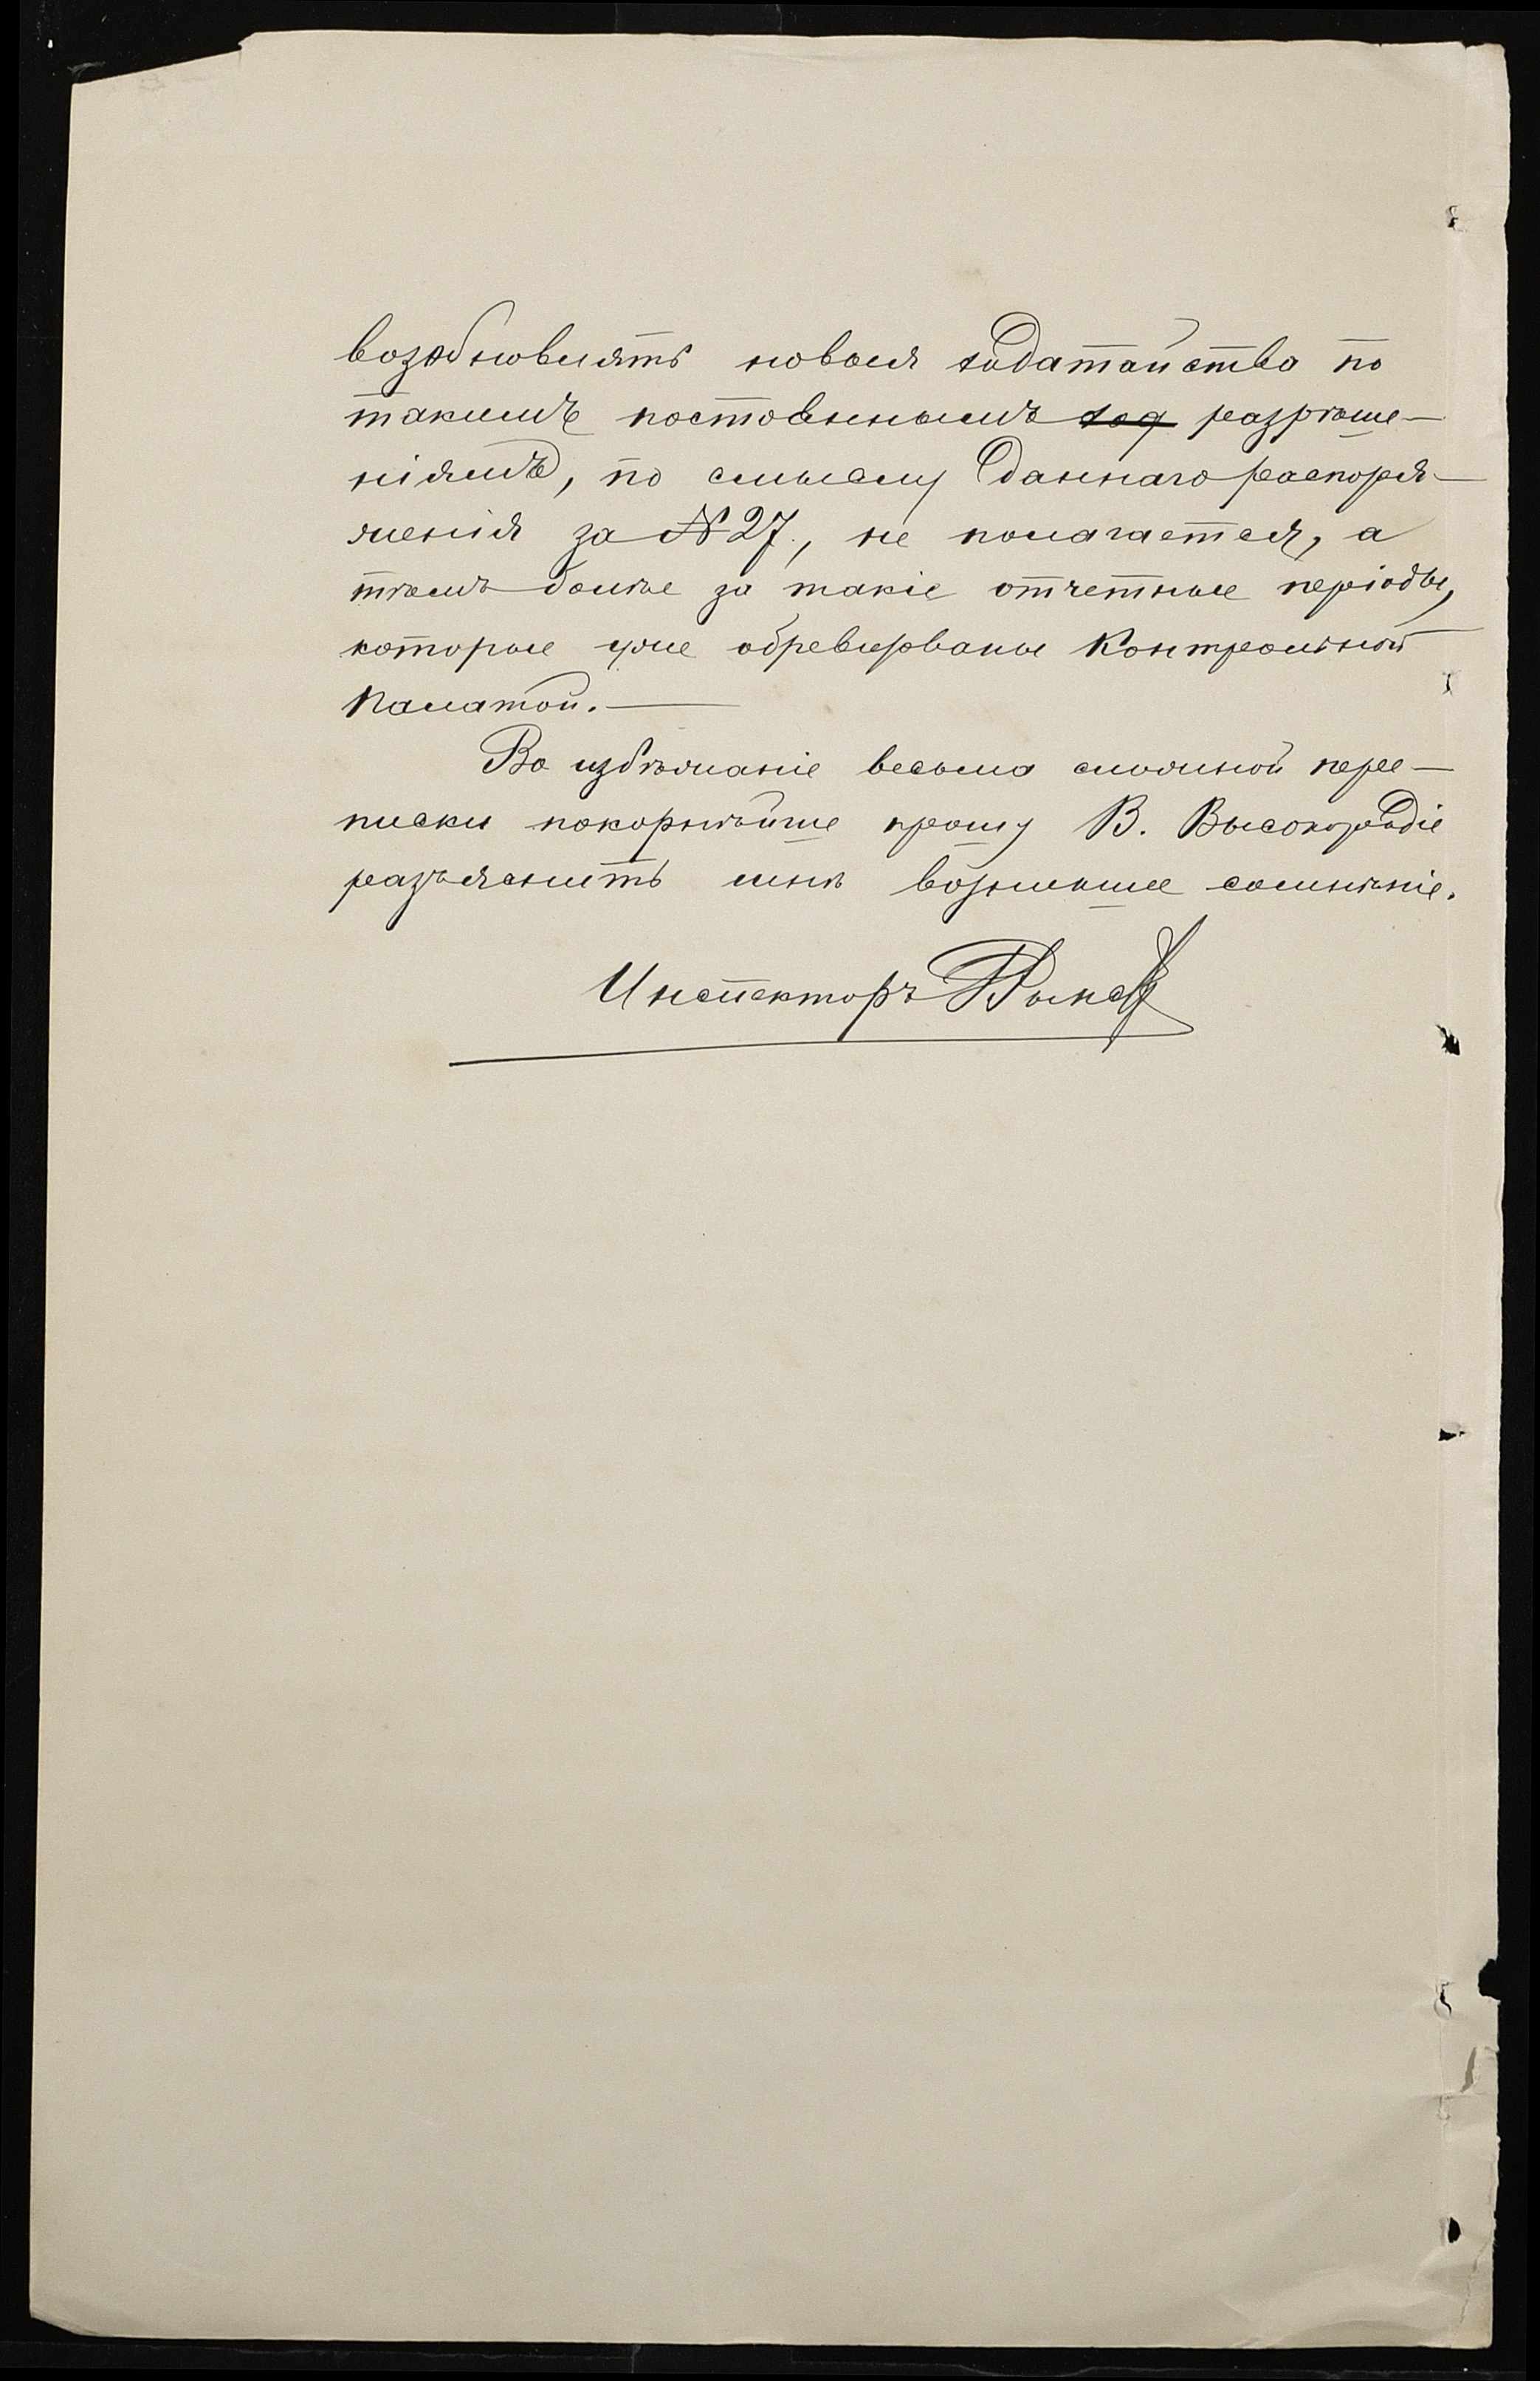 возобновлять новыя ходатайства по
такимъ постояннымъ ход разрѣше-
ніямъ, по смыслу даннаго распоря-
женія за № 27, не полагается, а
тѣмъ болѣе за такіе отчетные періоды,
которые уже обревизованы Контрольной
Палатой.—
Во избѣжаніе весьма сложной пере-
писки покорнѣйше прошу В. Высокородіе
разъяснить мнѣ возникшее сомнѣніе.
Инспекторъ